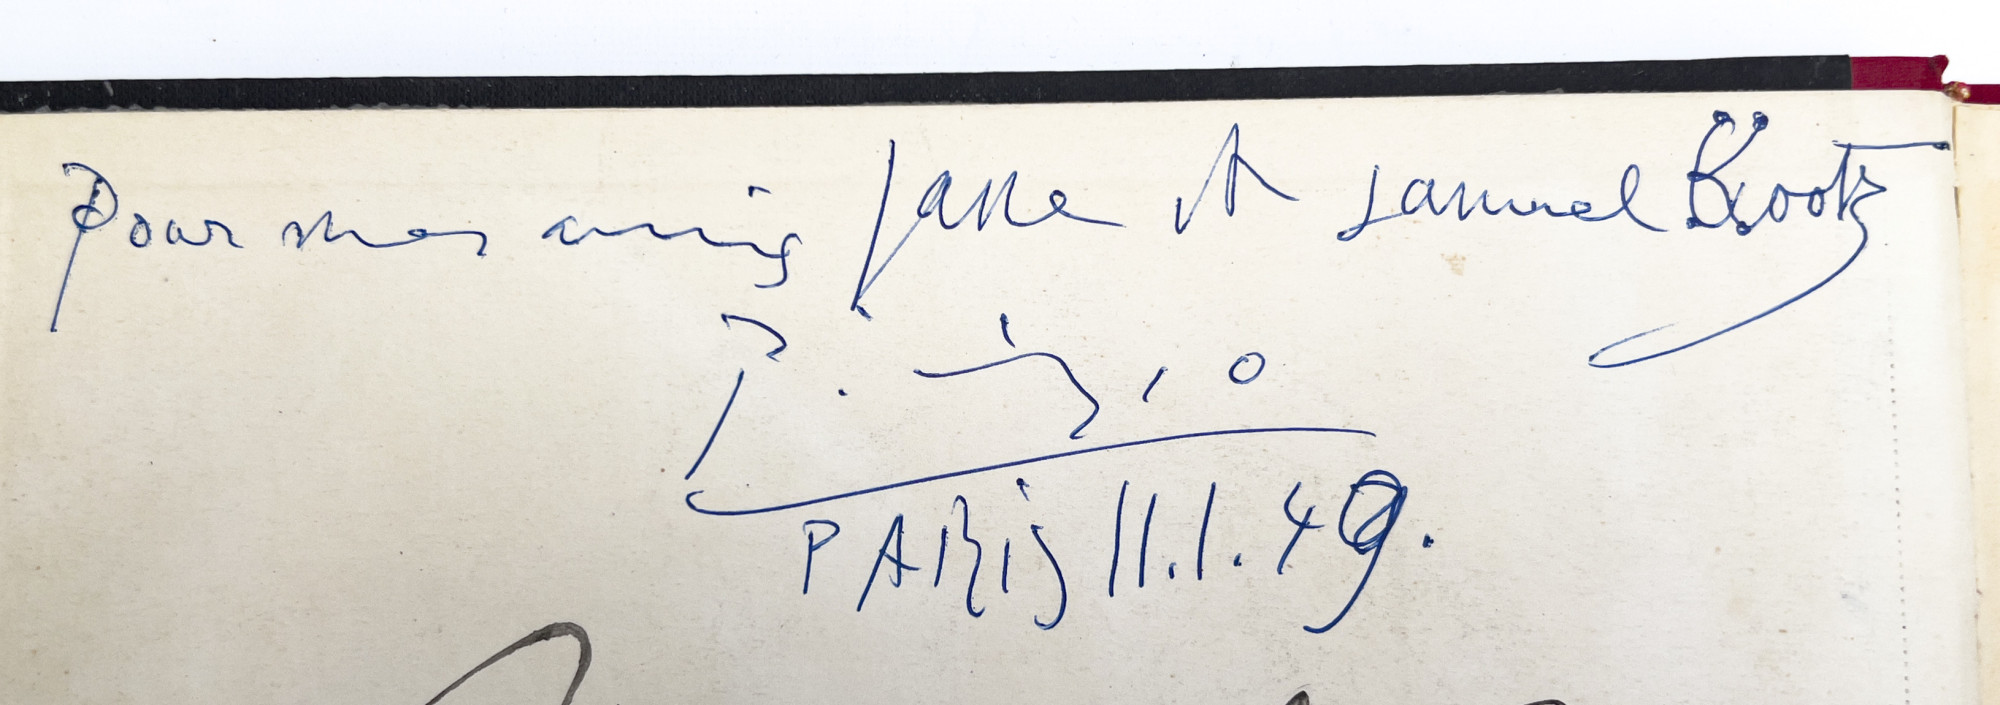 Pour mes amis Jane et Samuel Kootz
Picasso
PARiS 11.1.49.